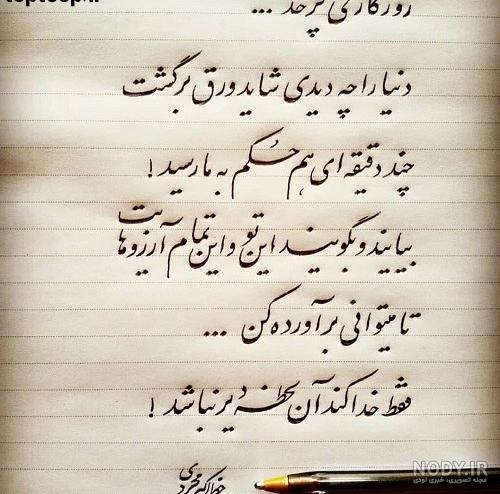 روزگاری پر خد ...
دنیا را چه دیدی شاید ورق برگشت
چند دقیقه ای هم حکم به ما رسید !
بیایند و بگویند این تو و این تمام آرزوهایت
تا میتوانی برآورده کن ...
فقط خدا کند آن لحظه دیر نباشد !
NODY.IR
مجله تصویری، خبری نودی